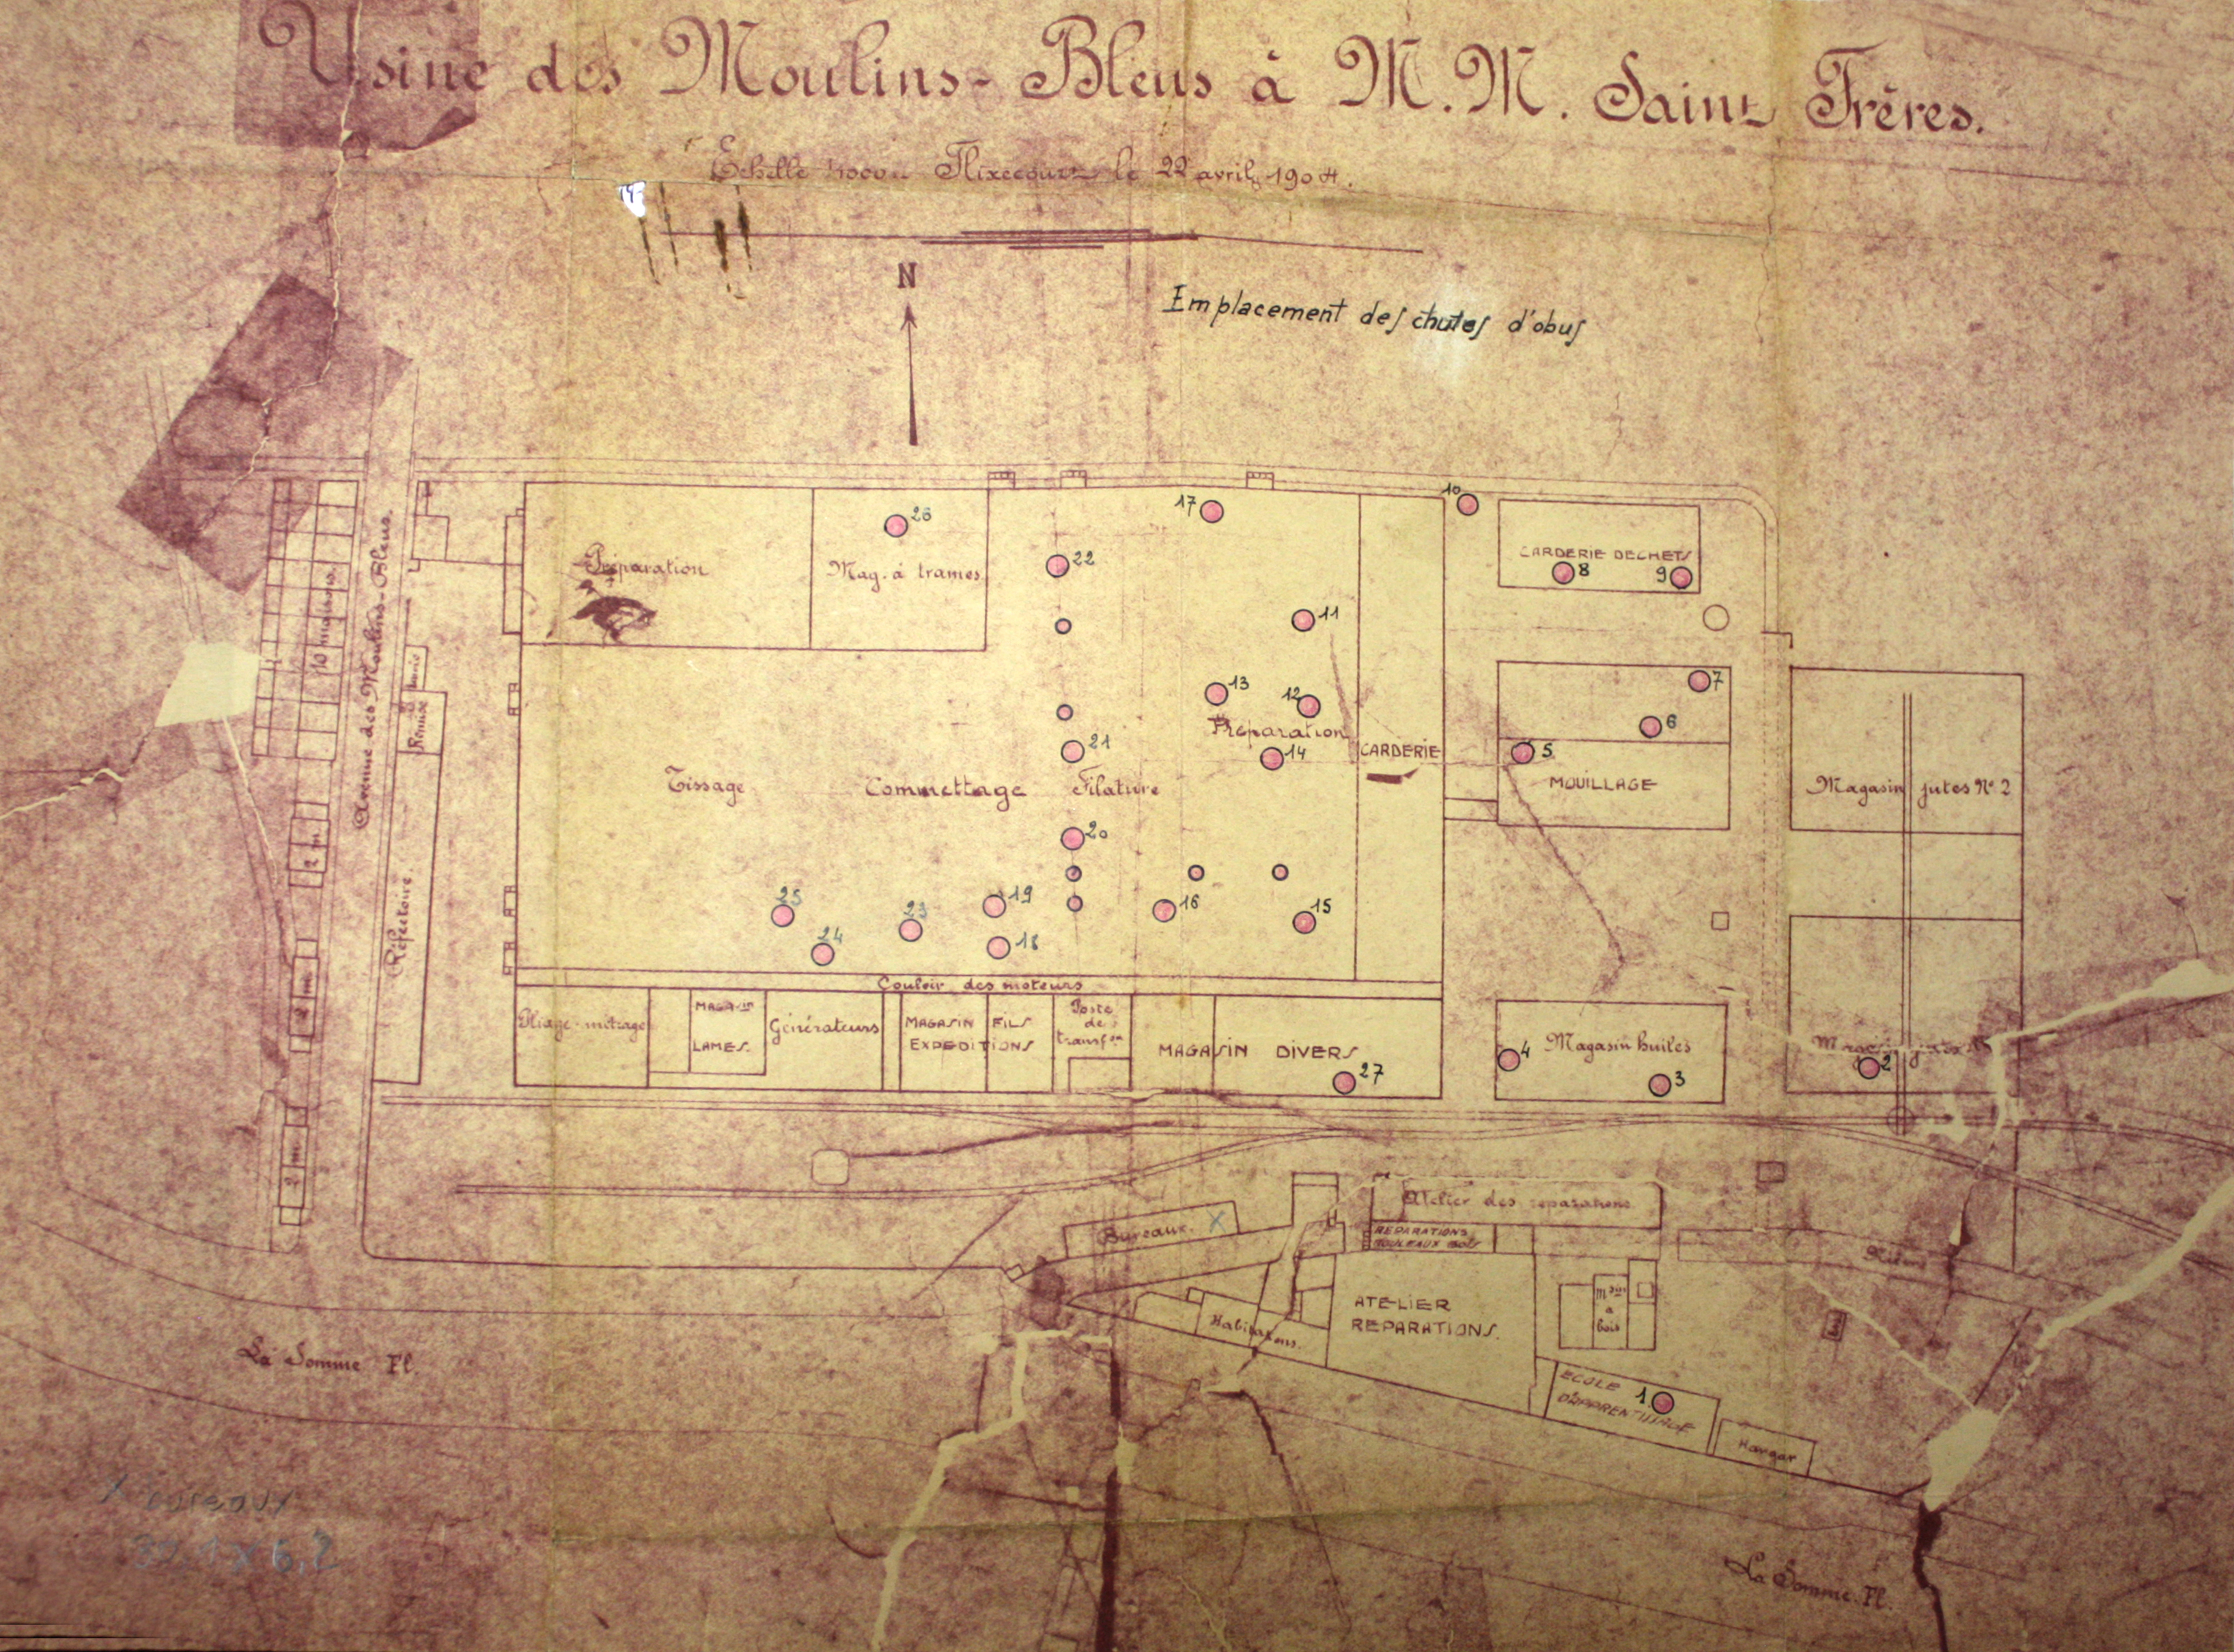 Usine des Moulins-Bleus à M.M. Saint Frères.
Echelle Flixecourt le 22 avril 1904.
N
Emplacement des chutes d'obus
10
17
26
CARDERIE DECHETS
22
Préparation
Mag. à trames
8
9
10 maisons.
11
Avenue des Moulins-Bleus.
7
13
12
Remise
6
Préparation
21
CARDERIE
5
14
MOUILLAGE
Magasin jutes Nº 2
Tissage
Commettage
Filature
20
2 m
Réfectoire.
25
23
19
16
15
24
18
Couloir des moteurs
MAGASIN
LAMES.
Pliage-métrage
Générateurs
MAGASIN FILS
EXPEDITIONS
Poste
de
transf on
MAGASIN DIVERS
27
4
Magasin huiles
3
2
2 m
2 m
Atelier des réparations
Bureaux. X
REPARATIONS
ROULEAUX BOIS
ATELIER
REPARATIONS.
Habitations.
m son
a
bois
La Somme Fl.
ECOLE
D'APPRENTISSAGE
1
Hangar
X bureaux
La Somme Fl.